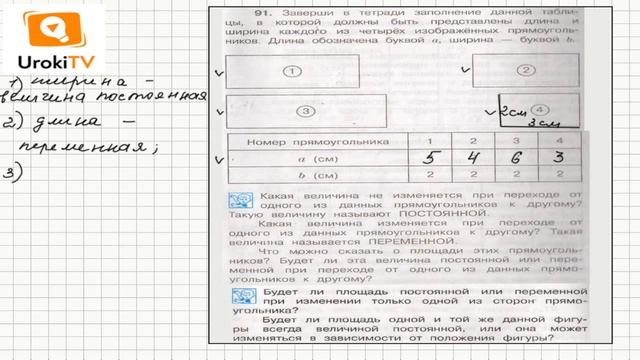 UrokiTV
1) ширина –
величина постоянная
2) длина –
переменная;
3)
91. Заверши в тетради заполнение данной табли-
цы, в которой должны быть представлены длина и
ширина каждого из четырёх изображённых прямоуголь-
ников. Длина обозначена буквой a, ширина — буквой b.
1
2
3
4
2см
3см
Номер прямоугольника 1 2 3 4
a (см) 5 4 6 3
b (см) 2 2 2 2
Какая величина не изменяется при переходе от
одного из данных прямоугольников к другому?
Такую величину называют ПОСТОЯННОЙ.
Какая величина изменяется при переходе от
одного из данных прямоугольников к другому? Такая
величина называется ПЕРЕМЕННОЙ.
Что можно сказать о площади этих прямоуголь-
ников? Будет ли эта величина постоянной или пере-
менной при переходе от одного из данных прямо-
угольников к другому?
Будет ли площадь постоянной или переменной
при изменении только одной из сторон прямо-
угольника?
Будет ли площадь одной и той же данной фигу-
ры всегда величиной постоянной, или она может
изменяться в зависимости от положения фигуры?